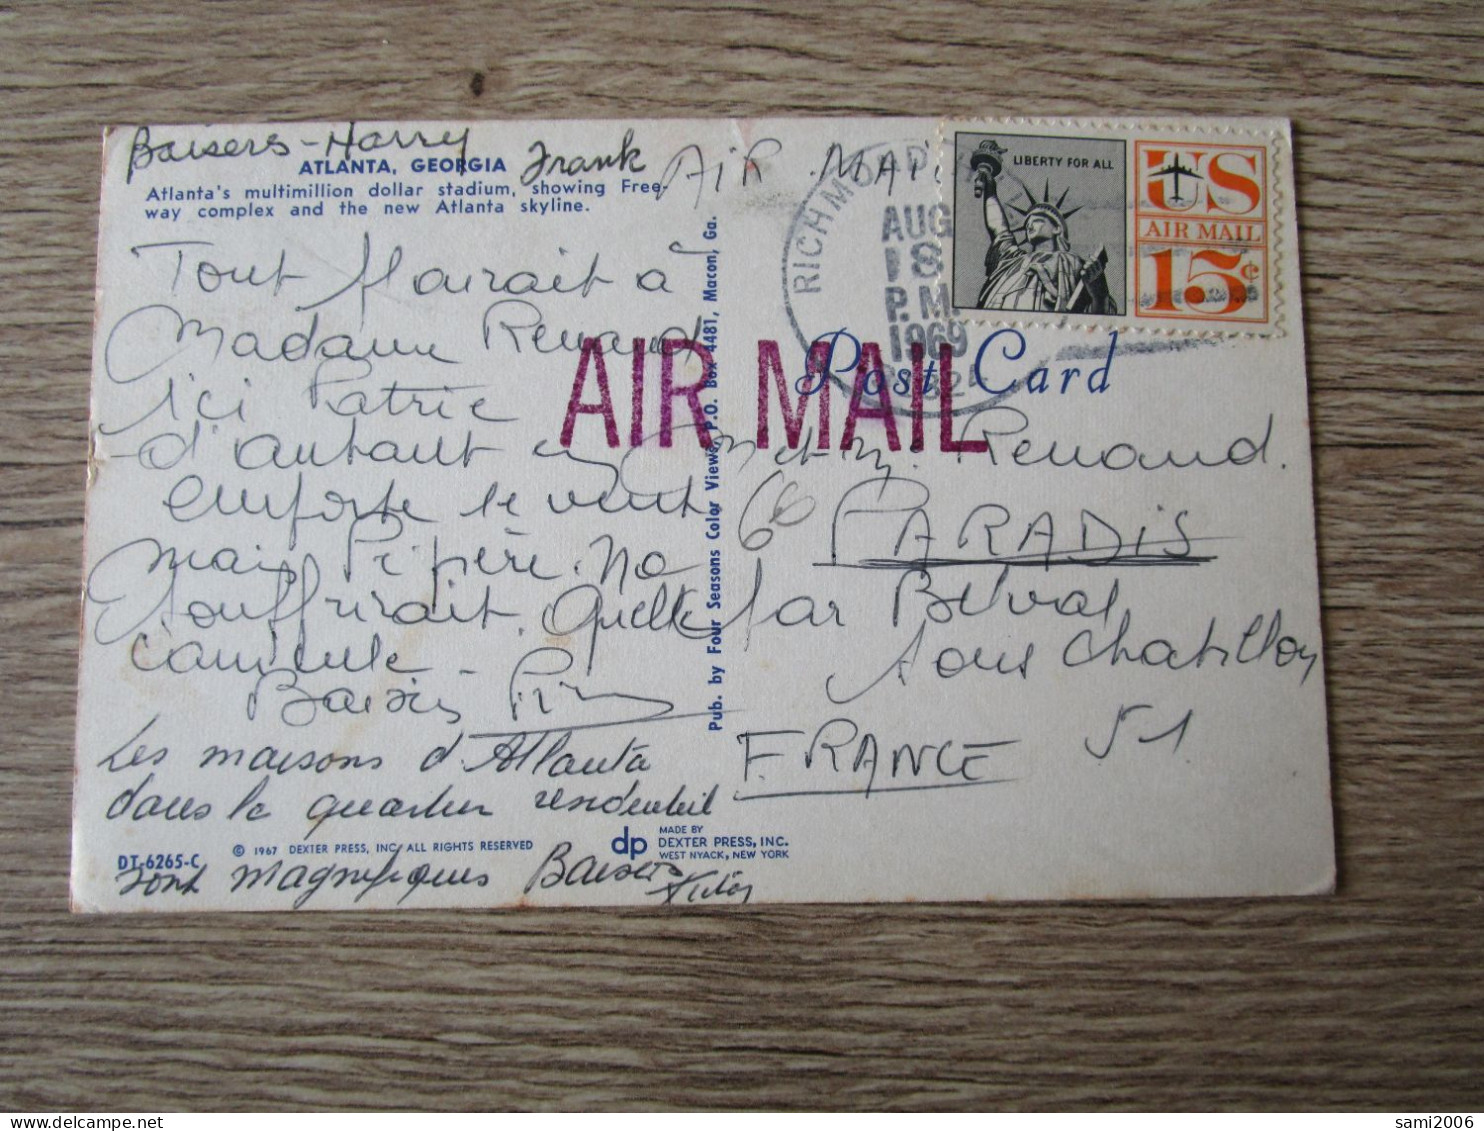 Baisers - Harry
Frank
ATLANTA, GEORGIA
Atlanta's multimillion dollar stadium, showing Free-
way complex and the new Atlanta skyline.
Tout plairait à
Madame Renaud
ici Patrie
d'autant
emporte le vent
mais Pépère
souffrirait. Quelle
canicule -
Baisers
Les maisons d'Atlanta
dans le quartier résidentiel
sont magnifiques Baisers
DT-6265-C
© 1967 DEXTER PRESS, INC. ALL RIGHTS RESERVED
dp
MADE BY
DEXTER PRESS, INC.
WEST NYACK, NEW YORK
Pub. by Four Seasons Color Views, P.O. Box 4481, Macon, Ga.
AIR MAIL
AIR MAIL
RICHMOND
AUG
18
P.M.
1969
LIBERTY FOR ALL
US
AIR MAIL
15¢
Post Card
Renaud.
PARADIS
par Belval
sous Chatillon
51
FRANCE
sami2006